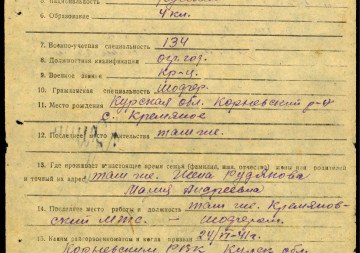 5. Национальность русский
6. Образование 4 кл.
7. Военно-учетная специальность 134
8. Должностная квалификация огр. год.
9. Военное звание кр-ц.
10. Гражданская специальность Шофер.
11. Место рождения Курская обл. Кореневский р-н
с. Кремяное
12. Последнее место жительства там же.
13. Где проживает в настоящее время семья (фамилия, имя, отчество) жены или родителей
и точный их адрес там же. Жена Рудякова
Мария Андреевна
14. Последнее место работы и должность там же. Кремянов-
ский МТС. — шофером.
15. Каким райгорвоенкоматом и когда призван 24/VI-41г.
Кореневским РВК Курск. обл.